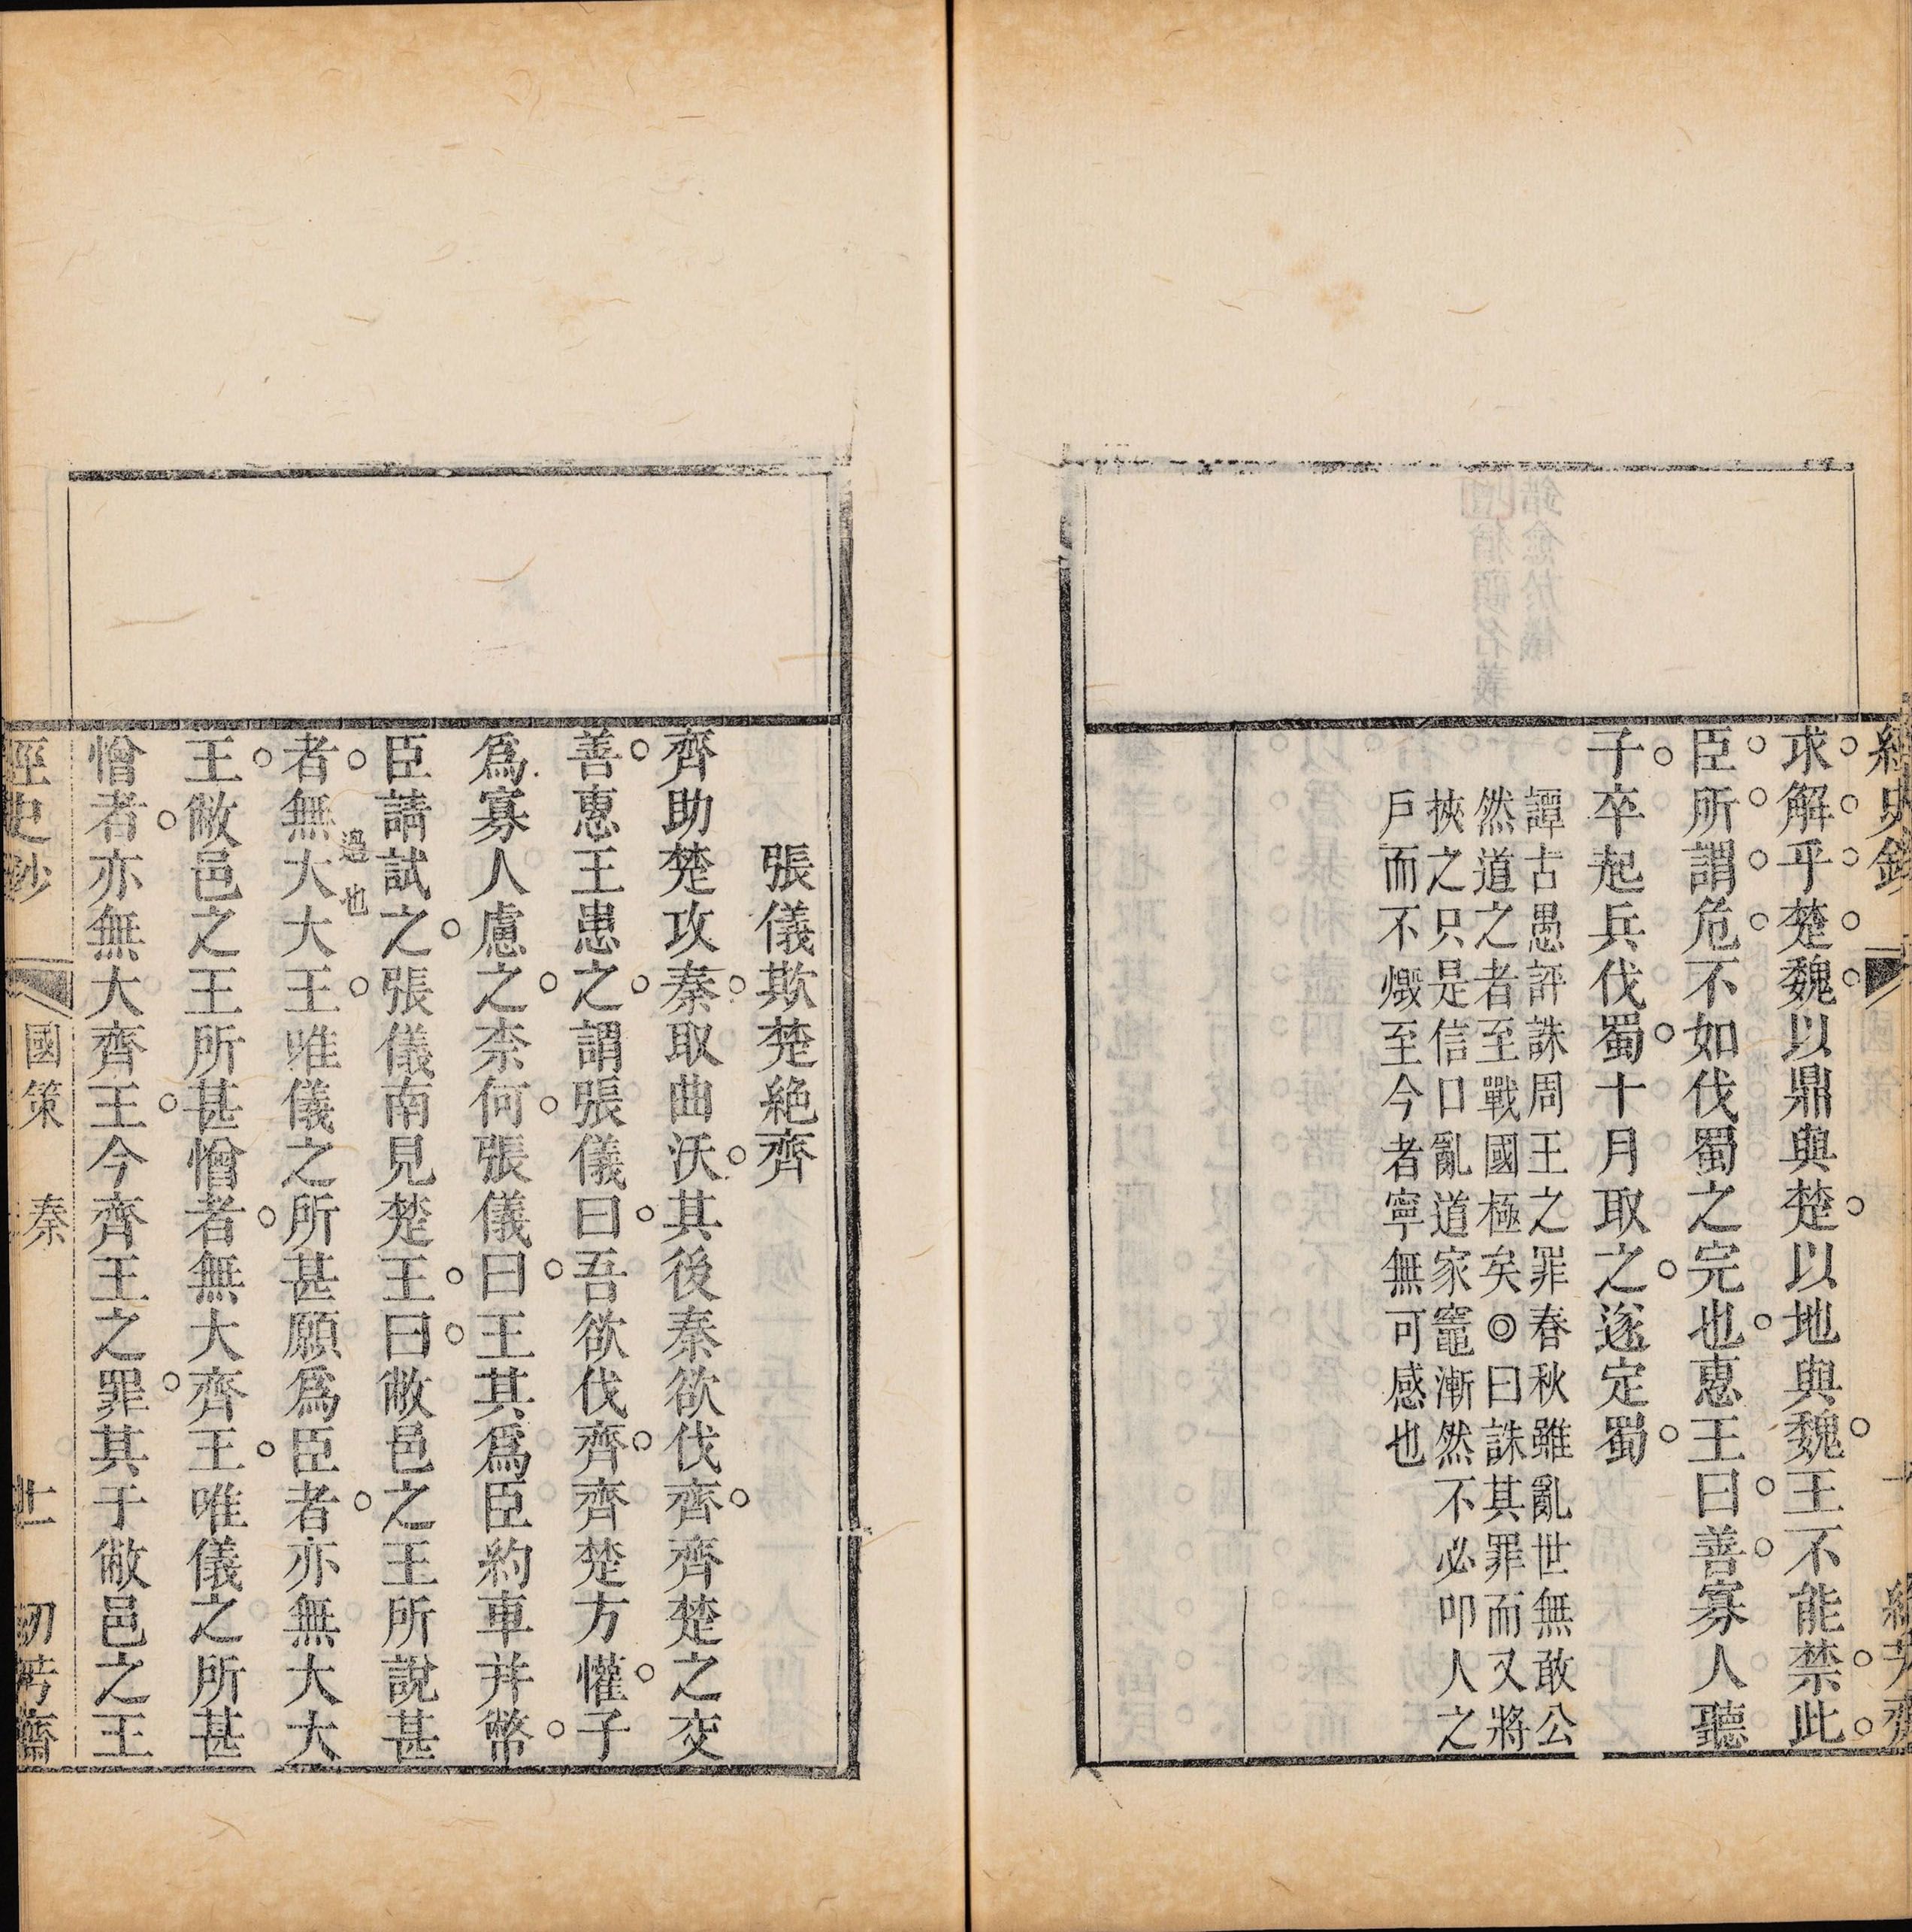 求解乎楚魏以鼎與楚以地與魏王不能禁此
臣所謂危不如伐蜀之完也惠王曰善寡人聽
子卒起兵伐蜀十月取之遂定蜀
譚古愚評誅周王之罪春秋雖亂世無敢公
然道之者至戰國極矣◎曰誅其罪而又將
挾之只是信口亂道家竈漸然不必叩人之
戶而不燬至今者寧無可感也
張儀欺楚絕齊
齊助楚攻秦取曲沃其後秦欲伐齊齊楚之交
善惠王患之謂張儀曰吾欲伐齊齊楚方懽子
爲寡人慮之柰何張儀曰王其爲臣約車幷幣
臣請試之張儀南見楚王曰敝邑之王所說甚
者無大過也大王唯儀之所甚願爲臣者亦無大大
王敝邑之王所甚憎者無大齊王唯儀之所甚
憎者亦無大齊王今齊王之罪其于敝邑之王
經史鈔
國策 秦